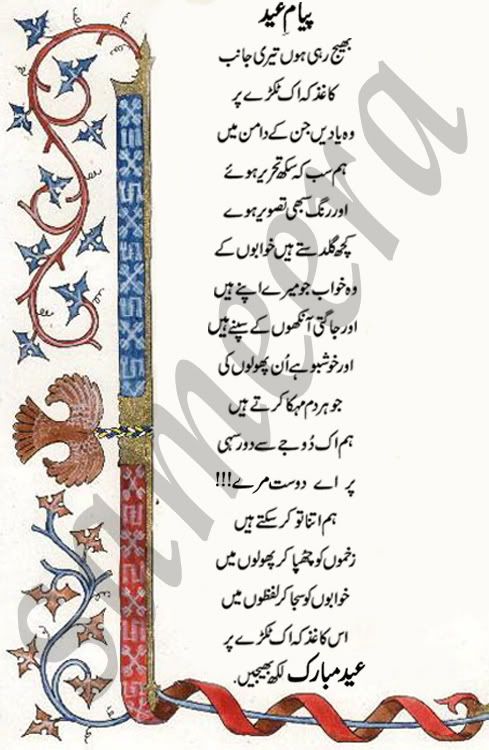 پیامِ عید
بھیج رہی ہوں تیری جانب
کاغذ کہ اک ٹکڑے پر
وہ یادیں جن کے دامن میں
ہم سب کہ سکھ تحریر ہوئے
اور رنگ سبھی تصویر ہوے
کچھ گلدستے ہیں خوابوں کے
وہ خواب جو میرے اپنے ہیں
اور جاگتی آنکھوں کے سپنے ہیں
اور خوشبو ہے اُن پھولوں کی
جو ہر دم مہکا کرتے ہیں
ہم اک دُوجے سے دور سہی
پر اے دوست مرے!!!
ہم اتنا تو کر سکتے ہیں
زخموں کو چھپا کر پھولوں میں
خوابوں کو سجا کر لفظوں میں
اس کاغذ کہ اک ٹکڑے پر
عید مبارک لکھ بھیجیں.
sameera